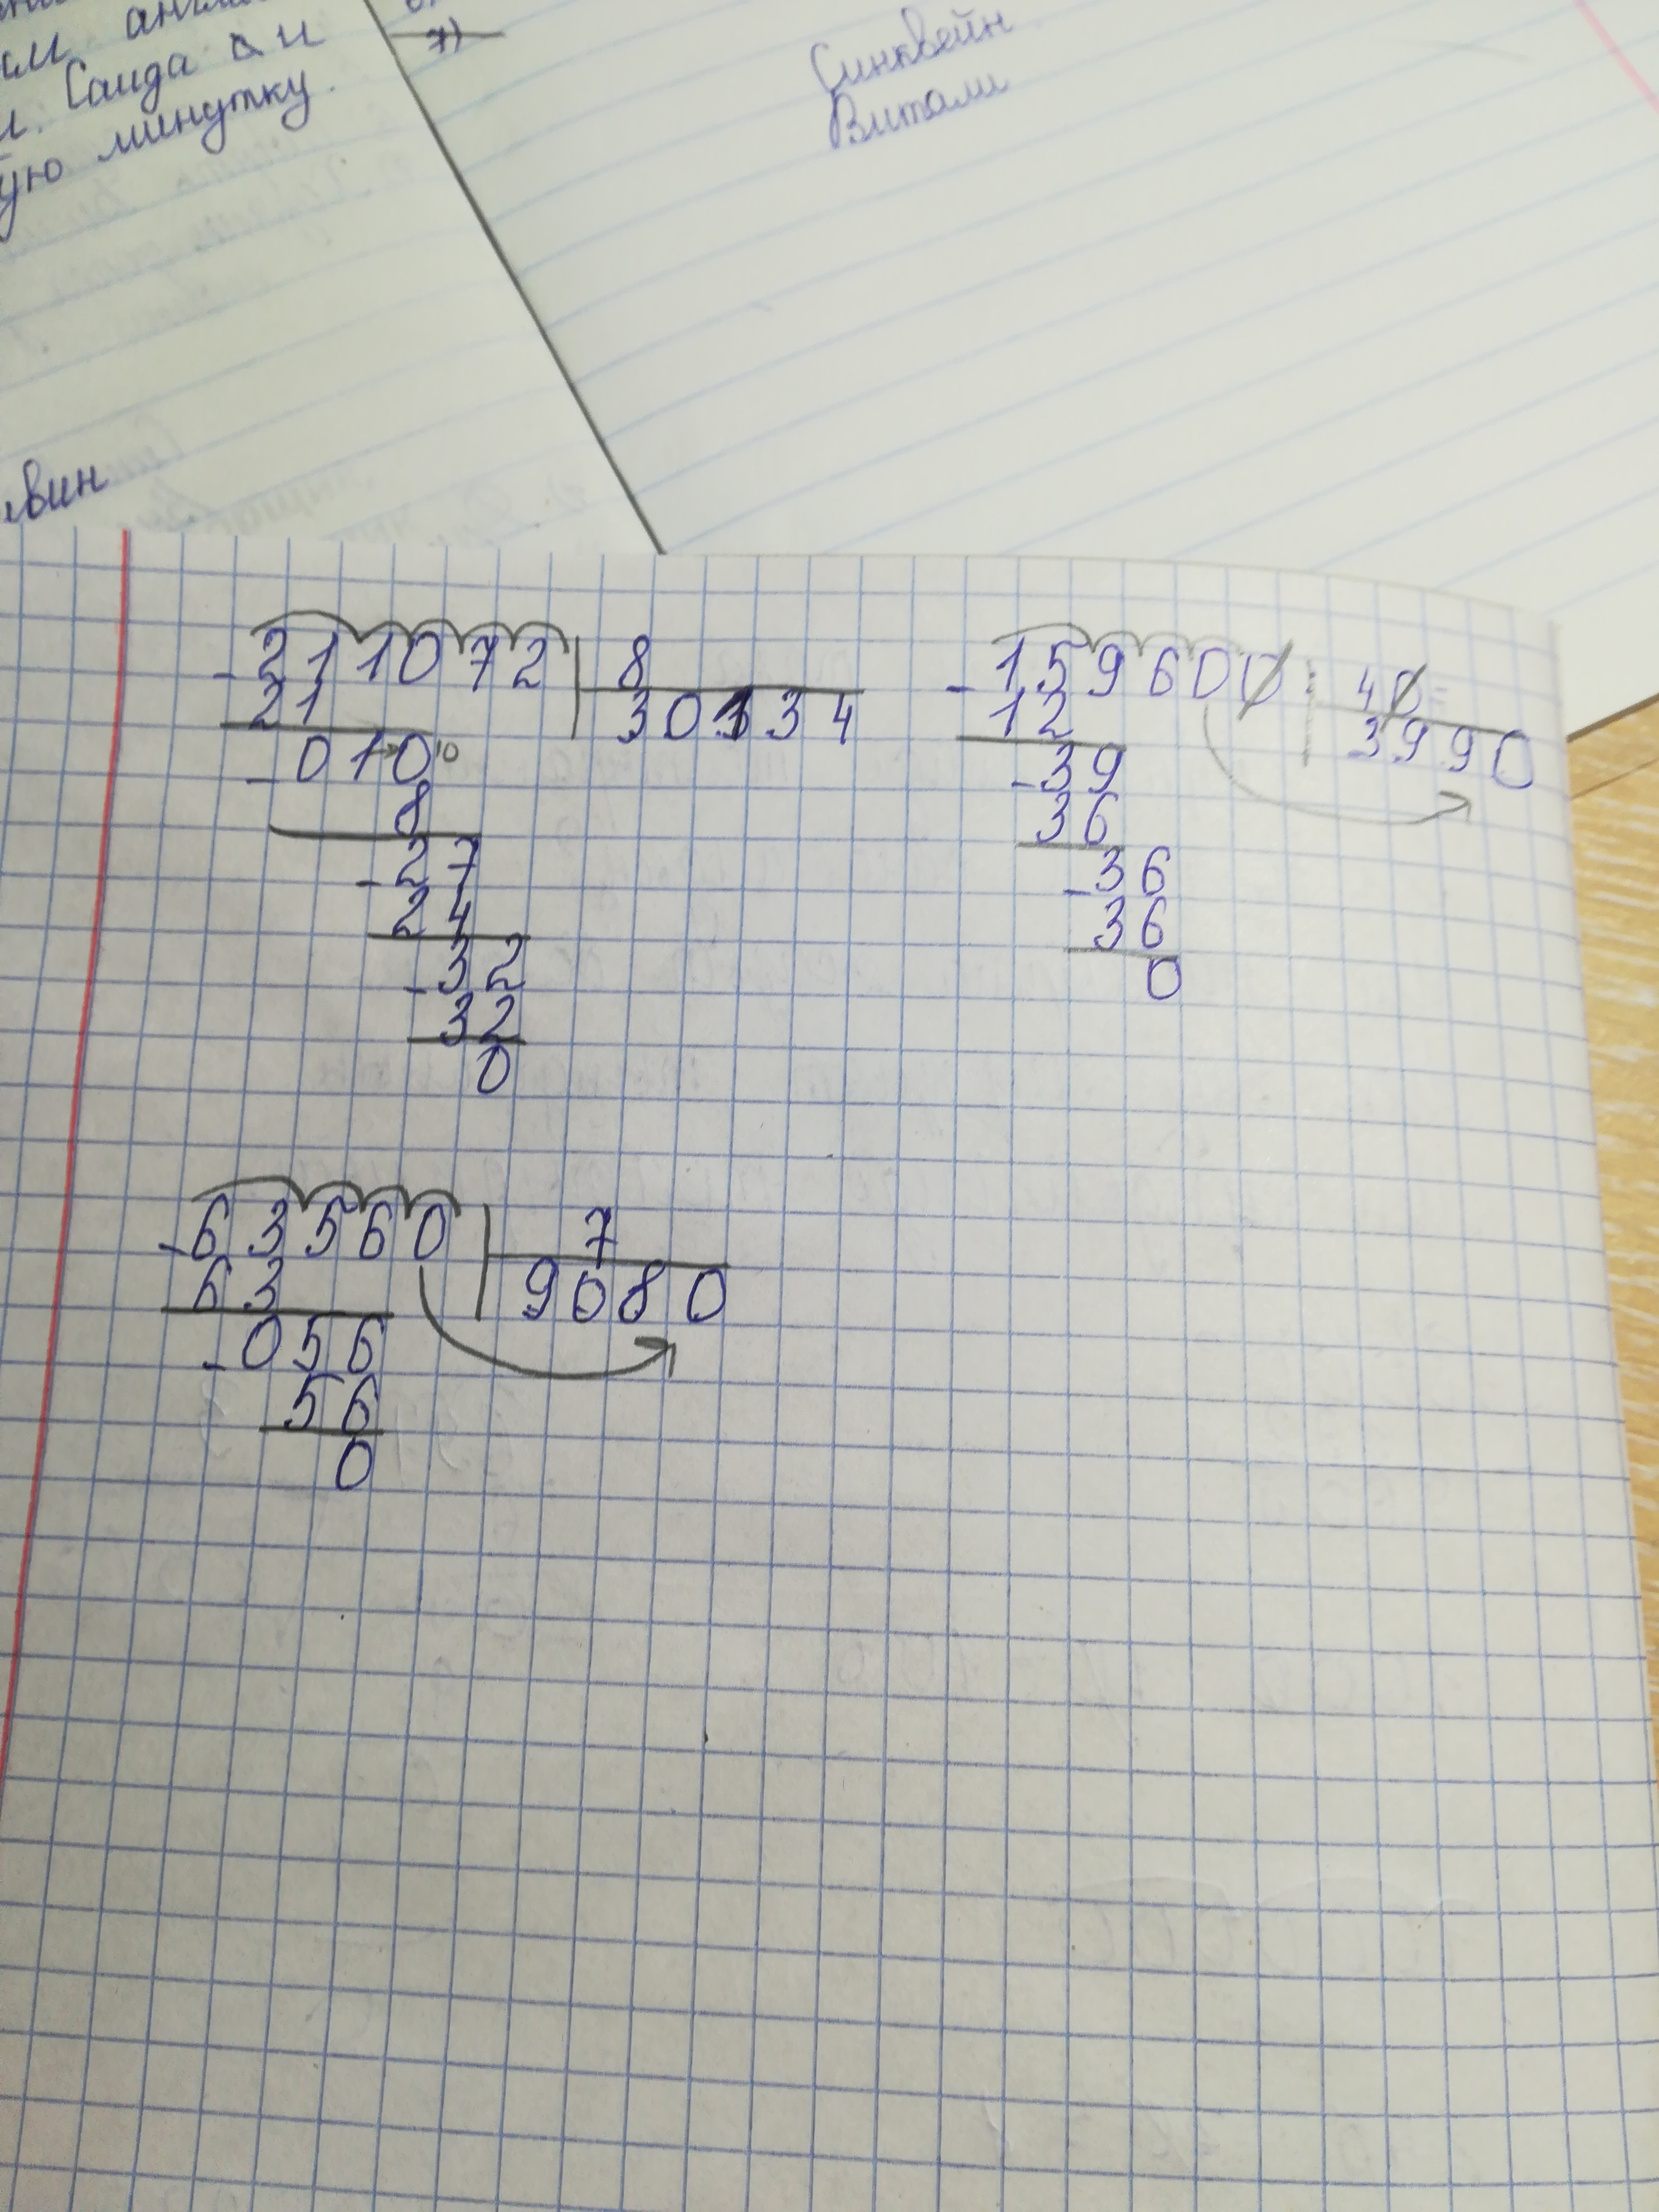 Саида и
минутку.
7)
Синквейн
Витами
211072 8
21 30134
010 10
8
27
24
32
32
0
159600 40=
12 3990
39
36
36
36
0
63560 7
63 9080
056
56
0